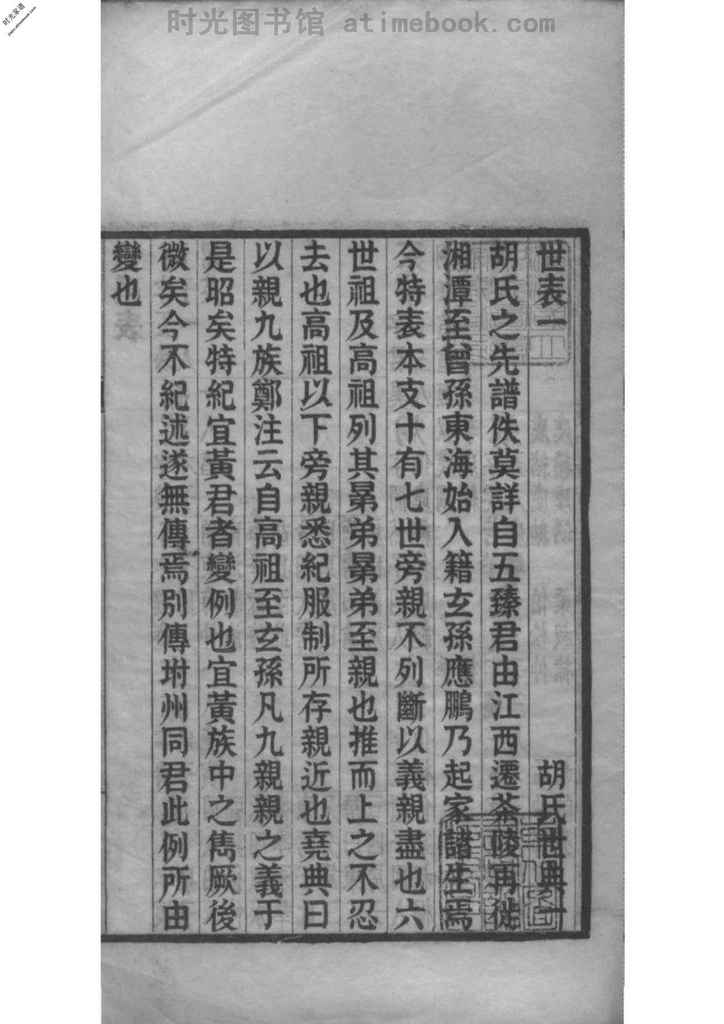 时光图书馆 atimebook.com
时光家谱
世表一 胡氏世典一
胡氏之先譜佚莫詳自五臻君由江西遷茶陵再徙
湘潭至曾孫東海始入籍玄孫應鵬乃起家諸生焉
今特表本支十有七世旁親不列斷以義親盡也六
世祖及高祖列其晜弟晜弟至親也推而上之不忍
去也高祖以下旁親悉紀服制所存親近也堯典曰
以親九族鄭注云自高祖至玄孫凡九親親之義于
是昭矣特紀宜黃君者變例也宜黃族中之雋厥後
微矣今不紀述遂無傳焉別傳坿州同君此例所由
變也